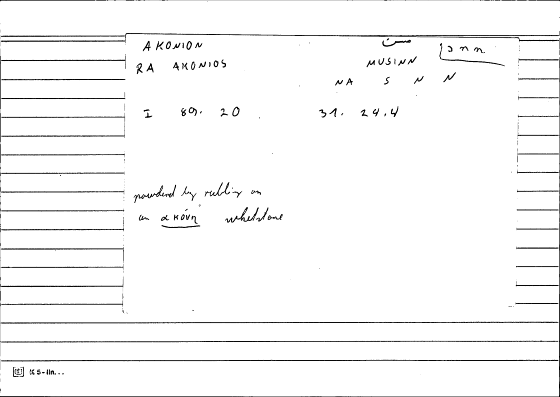 AKONION مسن
RA AKONIOS MUSINN
NA S N N
I 89. 20 31. 24.4
powdered by rubbing on
an ακόνη whetstone